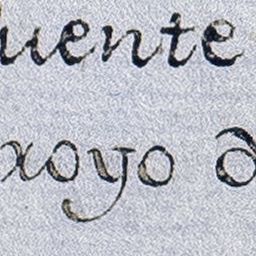 uente
xoyo d